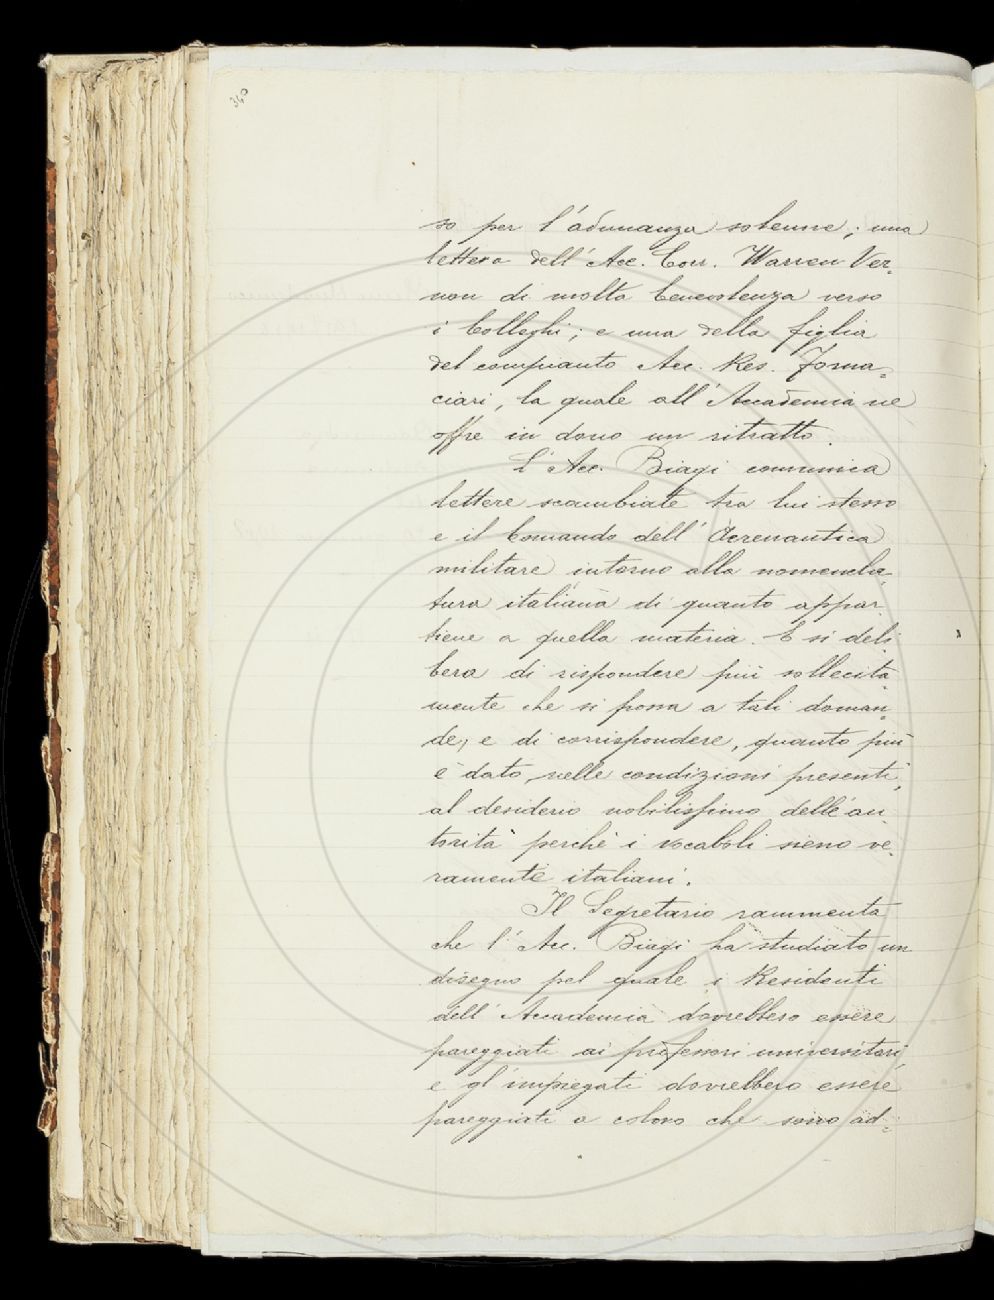 340
so per l'adunanza solenne; una
lettera dell'Acc. Corr. Warren Ver=
non di molta benevolenza verso
i Colleghi; e una della figlia
del compianto Acc. Res. Forna=
ciari, la quale all'Accademia ne
offre in dono un ritratto.
L'Acc. Biagi comunica
lettere scambiate tra lui stesso
e il Comando dell'Aereonautica
militare intorno alla nomencla=
tura italiana di quanto appar=
tiene a quella materia. E si deli=
bera di rispondere più sollecita=
mente che si possa a tali doman=
de, e di corrispondere, quanto più
è dato, nelle condizioni presenti,
al desiderio nobilissimo dell'au=
torità perchè i vocaboli sieno ve=
ramente italiani.
Il Segretario rammenta
che l'Acc. Biagi ha studiato un
disegno pel quale i Residenti
dell'Accademia dovrebbero essere
pareggiati ai professori universitari
e gl'impiegati dovrebbero essere
pareggiati a coloro che sono ad=